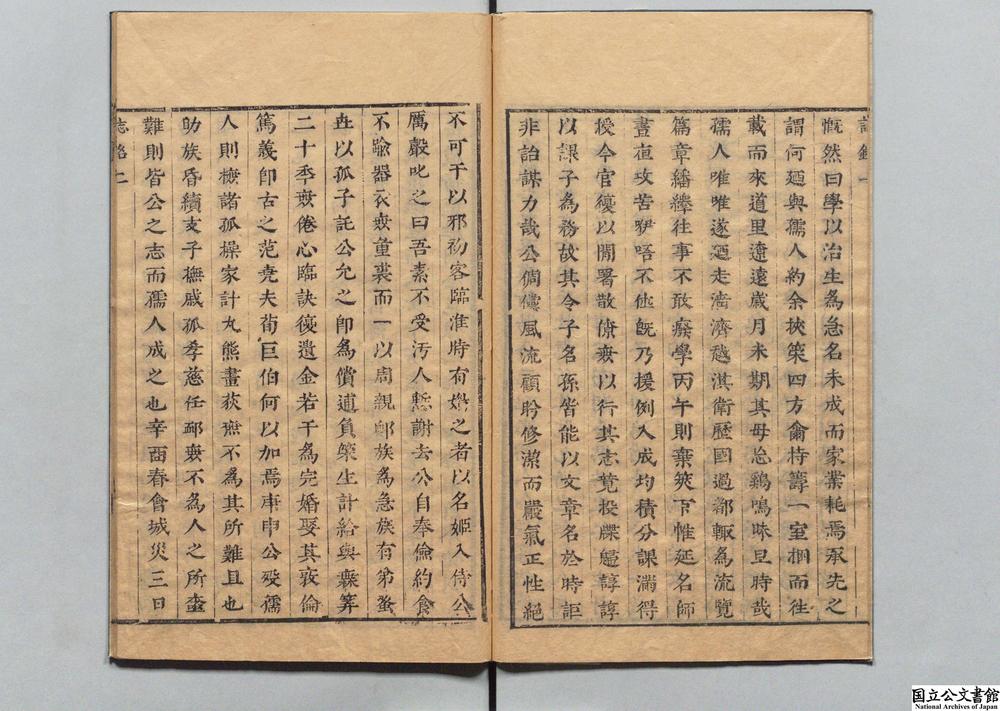 慨然曰學以治生為急名未成而家業耗焉承先之
謂何廼與孺人約余挾筞四方龠持籌一室捆而徃
載而來道里遼遠歳月未期其毋怠鷄鳴昧旦時哉
孺人唯唯遂廼走濟越淇衛歷國過都輒為流覽
篇章繙繹往事不敢癈學丙午則棄筴下帷延名師
晝夜攻苦咿唔不倦既乃援例入成均積分課滿得
授今官復以閒署散僚無以行其志竟投牒歸諄諄
以課子為務故其令子名孫皆能以文章名於時詎
非詒謀力哉公倜儻風流顧盻修潔而嚴氣正性絕
不可干以邪初客臨淮時有媚之者以名姬入侍公
厲聲叱之曰吾素不受汚人慙謝去公自奉儉約食
不踰器衣無重裘而一以周親䣊族為急族有弟蚤
世以孤子託公允之即為償逋負築生計給與橐筭
二十季無倦心臨訣復遺金若干為完婚娶其敦倫
篤義即古之范堯夫荀巨伯何以加焉庚申公歿孺
人則撫諸孤操家計丸熊畫荻無不為其所難且也
助族昏續支子撫戚孤孝慈任䘏無不為人之所
難則皆公之志而孺人成之也辛酉春會城災三日
志略二